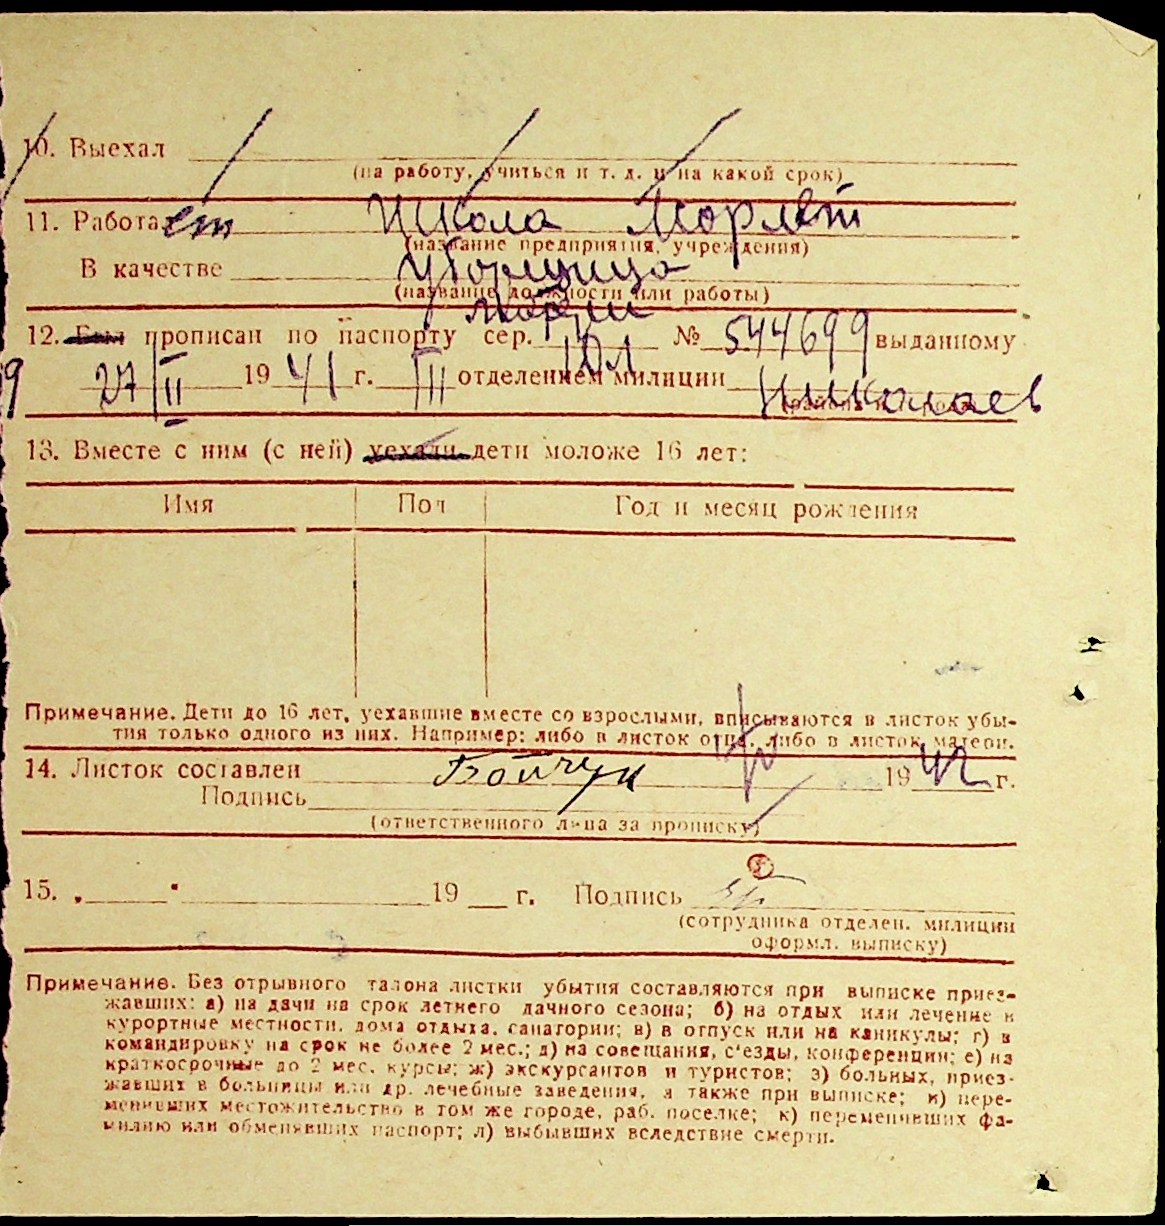 10. Выехал
(на работу, учиться и т. д. и на какой срок)
11. Работает Школа Морлёт
(название предприятия, учреждения)
В качестве уборщица
(название должности или работы)
12. Был прописан по паспорту сер. № 544699 выданному
27/II 1941 г. III отделением милиции Николаев
13. Вместе с ним (с ней) уехали дети моложе 16 лет:
Имя Пол Год и месяц рождения
Примечание. Дети до 16 лет, уехавшие вместе со взрослыми, вписываются в листок убы-
тия только одного из них. Например: либо в листок отца, либо в листок матери.
14. Листок составлен Бойчук 1942 г.
Подпись
(ответственного лица за прописку)
15. „ " 19 г. Подпись
(сотрудника отделен. милиции
оформл. выписку)
Примечание. Без отрывного талона листки убытия составляются при выписке приез-
жавших: а) на дачи на срок летнего дачного сезона; б) на отдых или лечение в
курортные местности, дома отдыха, санатории; в) в отпуск или на каникулы; г) в
командировку на срок не более 2 мес.; д) на совещания, с'езды, конференции; е) на
краткосрочные до 2 мес. курсы; ж) экскурсантов и туристов; з) больных, приез-
жавших в больницы или др. лечебные заведения, а также при выписке; и) пере-
менивших местожительство в том же городе, раб. поселке; к) переменивших фа-
милию или обменявших паспорт; л) выбывших вследствие смерти.